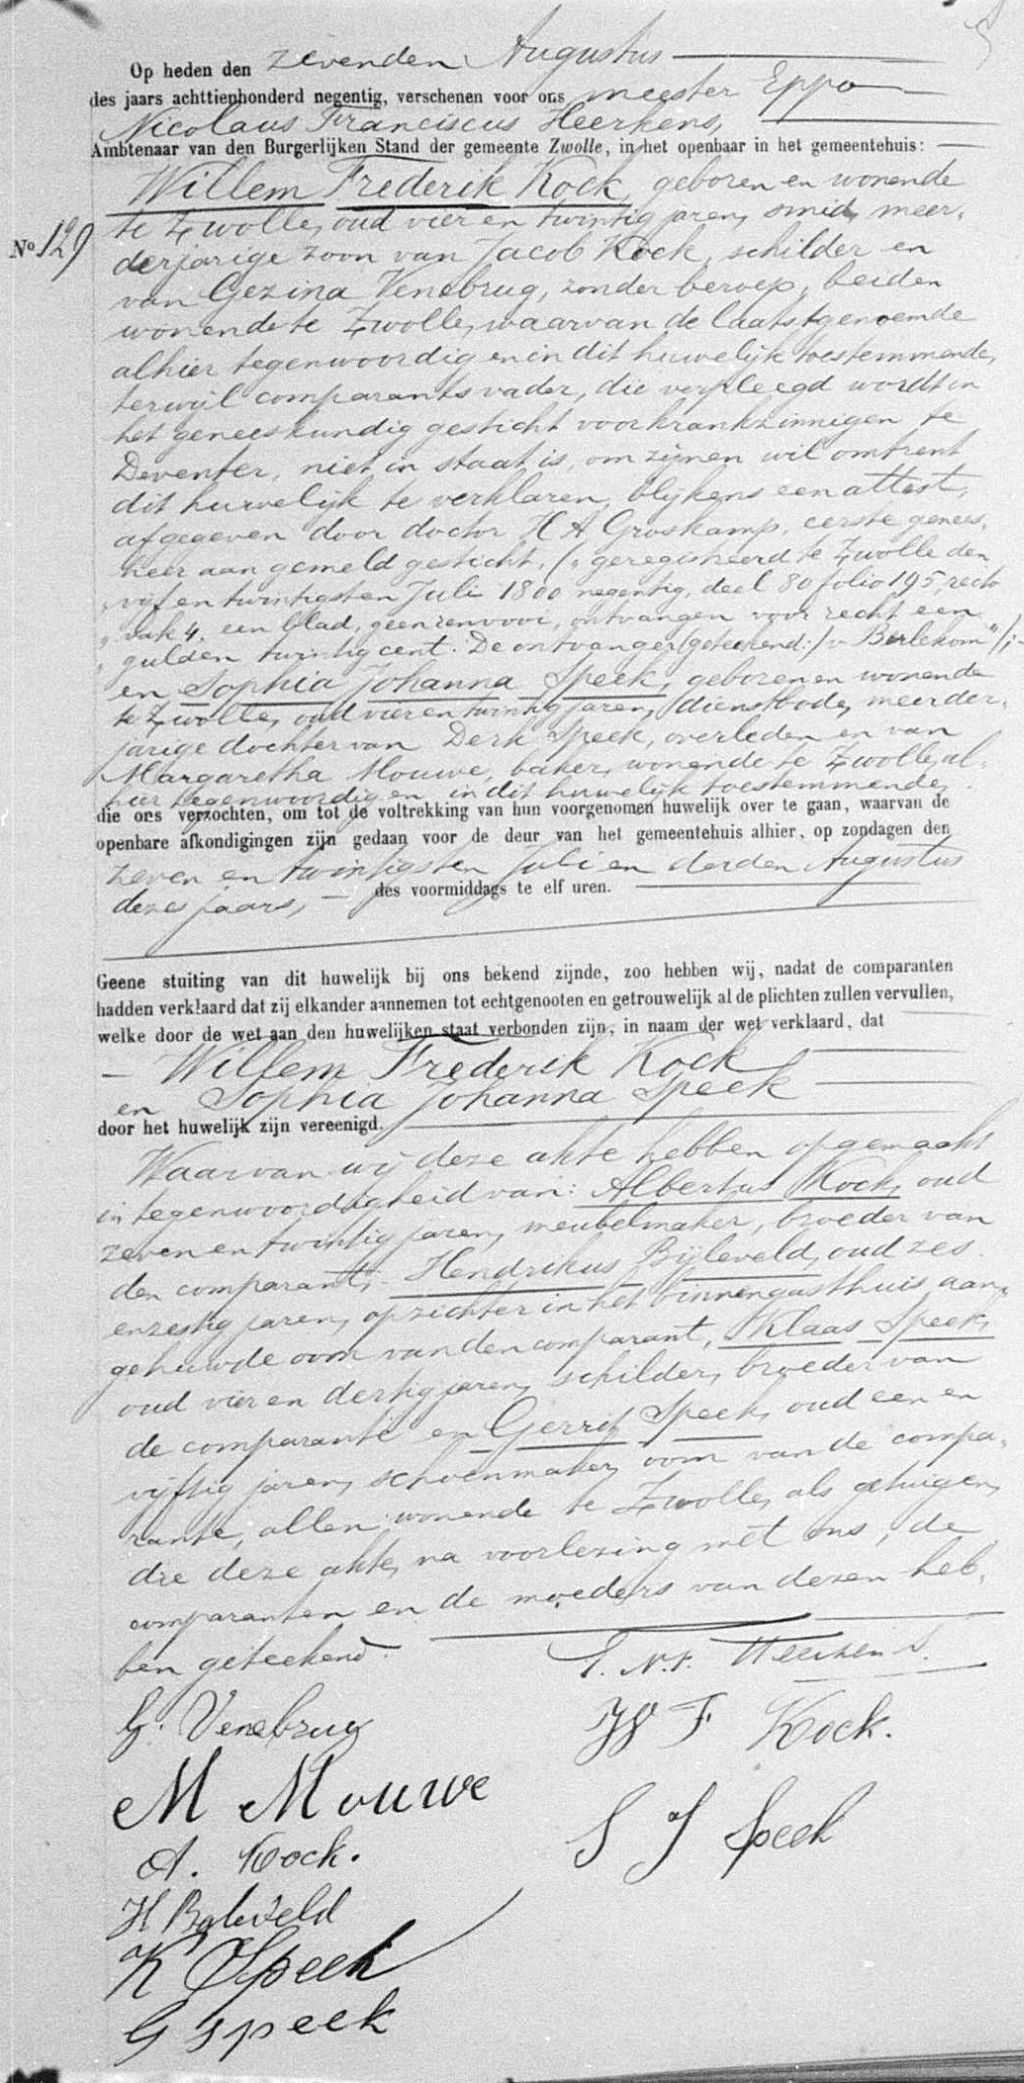 Op heden den zevenden Augustus
des jaars achttienhonderd negentig, verschenen voor ons meester Eppo
Nicolaus Franciscus Heerkens,
Ambtenaar van den Burgerlijken Stand der gemeente Zwolle, in het openbaar in het gemeentehuis:
Willem Frederik Kock, geboren en wonende
No 129
te Zwolle, oud vier en twintig jaren, smid, meer-
derjarige zoon van Jacob Kock, schilder en
van Gezina Venebrug, zonder beroep, beiden
wonende te Zwolle, waarvan de laatstgenoemde
alhier tegenwoordig en in dit huwelijk toestemmende,
terwijl comparants vader, die verpleegd wordt in
het geneeskundig gesticht voor krankzinnigen te
Deventer, niet in staat is, om zijnen wil omtrent
dit huwelijk te verklaren, blijkens een attest,
afgegeven door doctor H A Groskamp, eerste genees-
heer aan gemeld gesticht, (" geregistreerd te Zwolle den
" vijf en twintigsten Juli 1800 negentig, deel 80 folio 195, recto
" vak 4, een blad, geen renvooi, ontvangen voor recht een
" gulden twintig cent. De ontvanger (geteekend:) v Berlekom")
en Sophia Johanna Speek, geboren en wonende
te Zwolle, oud vier en twintig jaren, dienstbode, meerder-
jarige dochter van Derk Speek, overleden en van
Margaretha Mouwe, baker, wonende te Zwolle, al-
hier tegenwoordig en in dit huwelijk toestemmende,
die ons verzochten, om tot de voltrekking van hun voorgenomen huwelijk over te gaan, waarvan de
openbare afkondigingen zijn gedaan voor de deur van het gemeentehuis alhier, op zondagen den
zeven en twintigsten Juli en derden Augustus
dezes jaars, des voormiddags te elf uren.
Geene stuiting van dit huwelijk bij ons bekend zijnde, zoo hebben wij, nadat de comparanten
hadden verklaard dat zij elkander aannemen tot echtgenooten en getrouwelijk al de plichten zullen vervullen,
welke door de wet aan den huwelijken staat verbonden zijn, in naam der wet verklaard, dat
Willem Frederik Kock
en Sophia Johanna Speek
door het huwelijk zijn vereenigd.
Waarvan wij deze akte hebben opgemaakt
in tegenwoordigheid van: Albertus Kock, oud
zeven en twintig jaren, meubelmaker, broeder van
den comparant, Hendrikus Bijleveld, oud zes
en zestig jaren, opzichter in het binnengasthuis, aan-
gehuwde oom van den comparant, Klaas Speek,
oud vier en dertig jaren, schilder, broeder van
de comparante en Gerrit Speek, oud een en
vijftig jaren, schoenmaker, oom van de compa-
rante, allen wonende te Zwolle, als getuigen,
die deze akte, na voorlezing met ons, de
comparanten en de moeders van dezen heb-
ben geteekend.
E. N. F. Heerkens.
G. Venebrug
W F Kock.
M Mouwe
S J Speek
A. Kock.
H Bijleveld
K Speek
G Speek